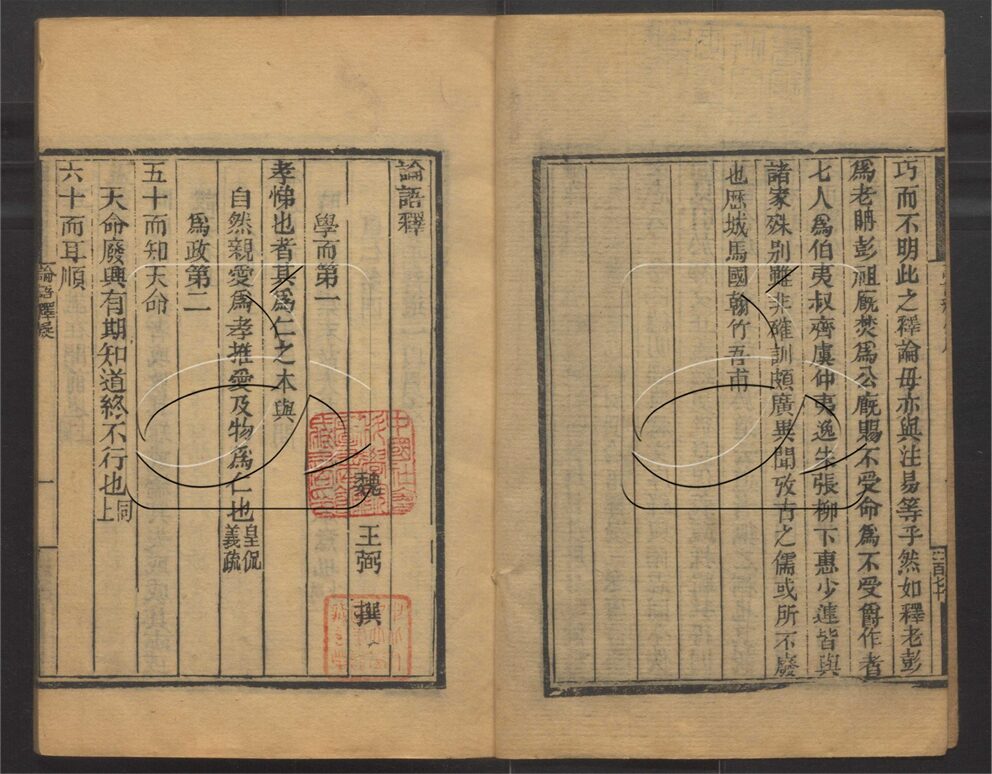 巧而不明此之釋論毋亦與注易等乎然如釋老彭
爲老聃彭祖廐焚爲公廐賜不受命爲不受爵作者
七人爲伯夷叔齊虞仲夷逸朱張柳下惠少連皆與
諸家殊別雖非確訓頗廣異聞攷古之儒或所不廢
也歷城馬國翰竹吾甫
論語釋
魏 王弼 撰
學而第一
孝悌也者其爲仁之本與
自然親愛爲孝推愛及物爲仁也皇侃義疏
爲政第二
五十而知天命
天命廢興有期知道終不行也同上
六十而耳順
論語釋疑
一